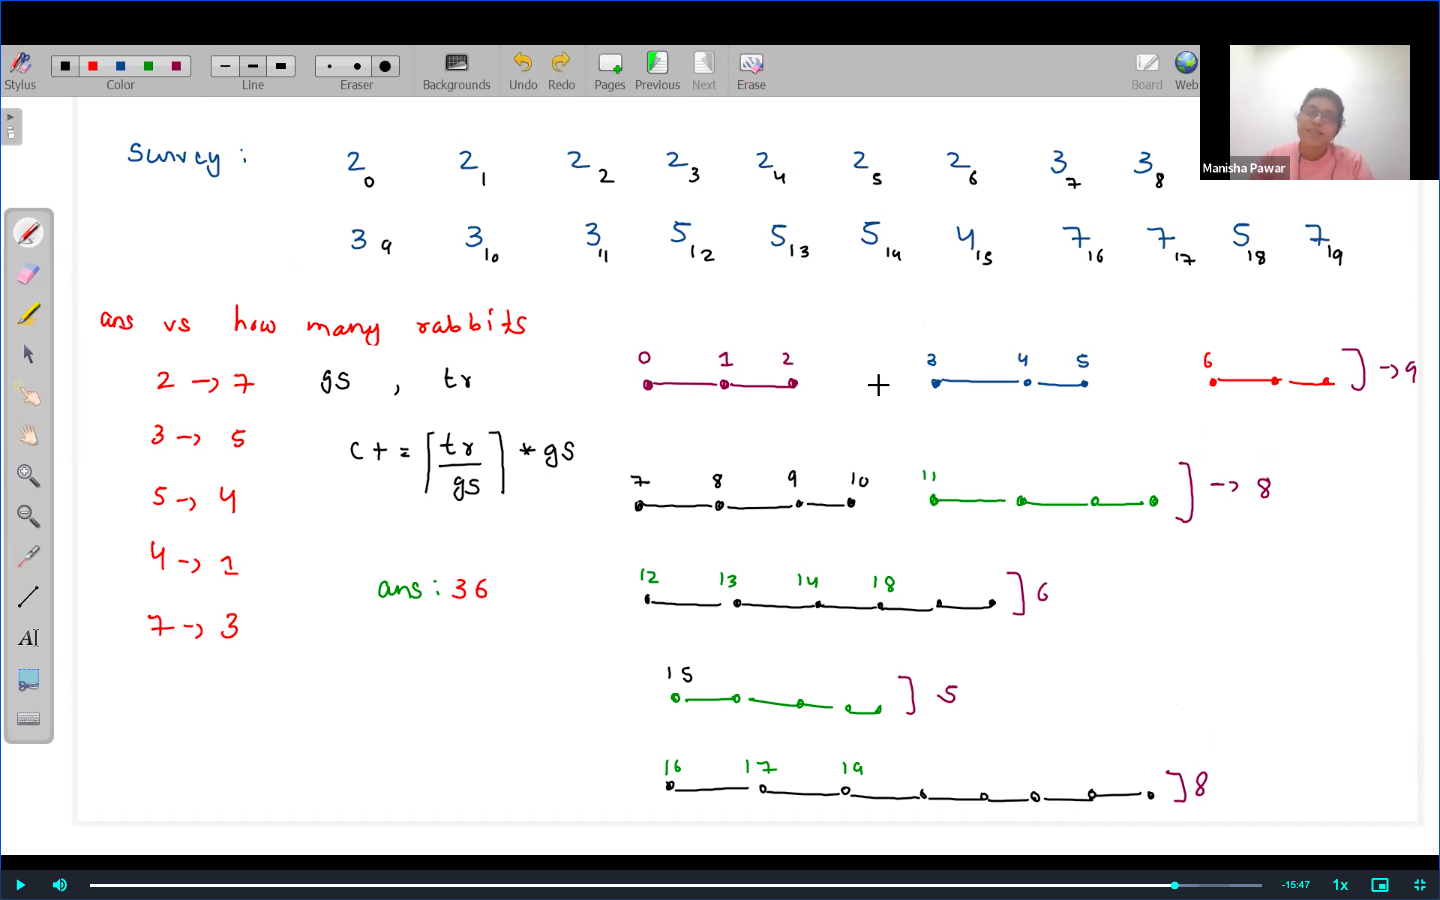 Stylus Color Line Eraser Backgrounds Undo Redo Pages Previous Next Erase Board Web
Manisha Pawar
Survey : 2 0 2 1 2 2 2 3 2 4 2 5 2 6 3 7 3 8
3 9 3 10 3 11 5 12 5 13 5 14 4 15 7 16 7 17 5 18 7 19
ans vs how many rabbits
2 -> 7 gs , tr
3 -> 5 c + = ⌈tr/gs⌉ * gs
5 -> 4
4 -> 1
7 -> 3
ans : 36
0 1 2 + 3 4 5 6 ] -> 9
7 8 9 10 11 ] -> 8
12 13 14 18 ] 6
15 ] 5
16 17 19 ] 8
AI
-15:47 1x